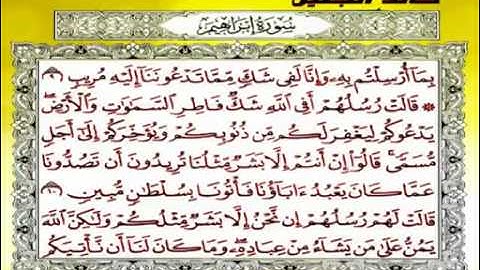 سُورَةُ إِبْرَاهِيم
بِمَآ أُرْسِلْتُم بِهِۦ وَإِنَّا لَفِى شَكٍّ مِّمَّا تَدْعُونَنَآ إِلَيْهِ مُرِيبٍ ۝٩
۞ قَالَتْ رُسُلُهُمْ أَفِى ٱللَّهِ شَكٌّ فَاطِرِ ٱلسَّمَـٰوَٰتِ وَٱلْأَرْضِ ۖ
يَدْعُوكُمْ لِيَغْفِرَ لَكُم مِّن ذُنُوبِكُمْ وَيُؤَخِّرَكُمْ إِلَىٰٓ أَجَلٍ
مُّسَمًّى ۚ قَالُوٓا۟ إِنْ أَنتُمْ إِلَّا بَشَرٌ مِّثْلُنَا تُرِيدُونَ أَن تَصُدُّونَا
عَمَّا كَانَ يَعْبُدُ ءَابَآؤُنَا فَأْتُونَا بِسُلْطَـٰنٍ مُّبِينٍ ۝١٠
قَالَتْ لَهُمْ رُسُلُهُمْ إِن نَّحْنُ إِلَّا بَشَرٌ مِّثْلُكُمْ وَلَـٰكِنَّ ٱللَّهَ
يَمُنُّ عَلَىٰ مَن يَشَآءُ مِنْ عِبَادِهِۦ ۖ وَمَا كَانَ لَنَآ أَن نَّأْتِيَكُم